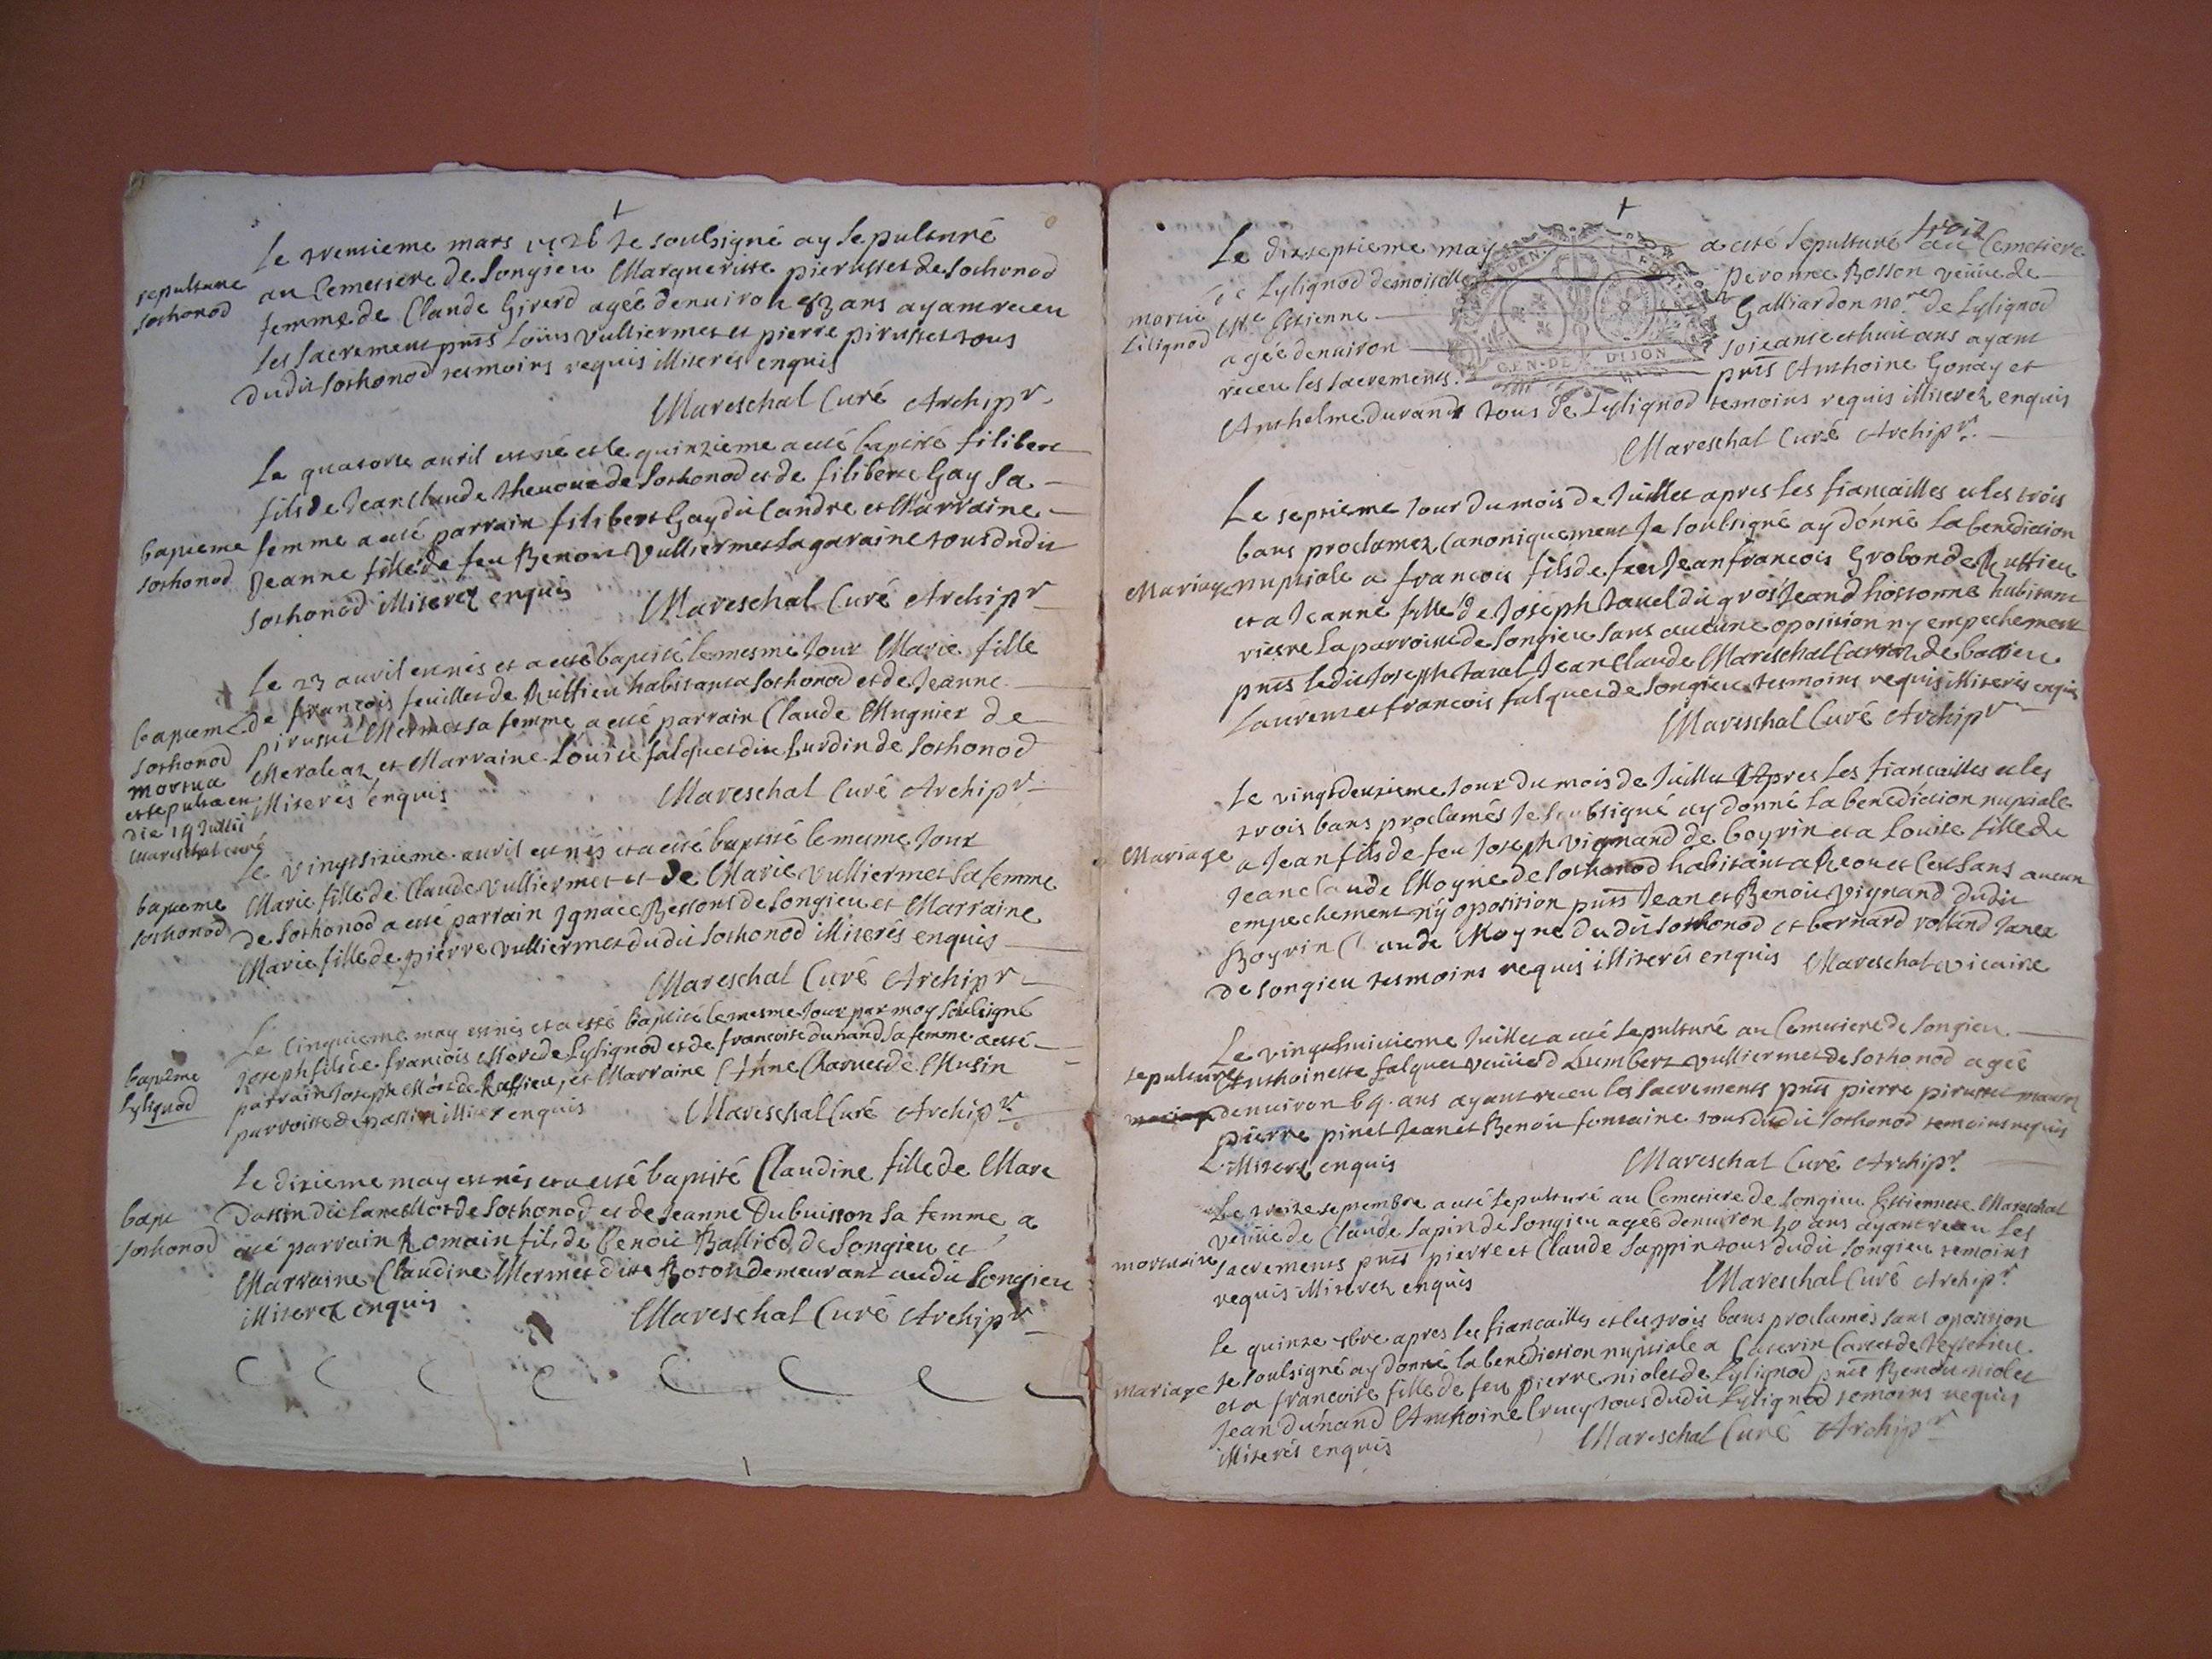 Le trentieme mars 1726 Je soubsigné ay sepulturé
sepulture
sothonod
au Cemettiere de Songieu Margueritte pierusset de Sothonod
femme de Claude Girerd agée denuiron 53 ans ayant receu
les sacrements pnts Loüis Vulliermet et pierre pirusset tous
dudit sothonod tesmoins requis illiterés enquis
Mareschal Curé Archipr
Le quatorse auril est né et le quinzieme a esté baptisé filibert
fils de Jean Claude thenoux de Sothonod et de filiberte Gay sa
bapteme
sothonod
femme a esté parrain filibert Gay du Candre et Marraine
Jeanne fille de feu Benoit Vulliermet la garaine tous dudit
sothonod illiterez enquis
Mareschal Curé Archipr
Le 23 auril est née et a esté baptisé le mesme Jour Marie fille
bapteme
sothonod
mortua
et sepulta en
die 19 Jullii
Mareschal curé
de françois feuillet de Ruffieu habitant a Sothonod et de Jeanne
pirusset Mermet sa femme a esté parrain Claude Mugnier de
Meraleaz et Marraine Louise falquet dite burdin de Sothonod
illiterés enquis
Mareschal Curé Archipr
Le vingtsixieme auril est née et a esté baptisé le mesme Jour
bapteme
sothonod
Marie fille de Claude Vulliermet et de Marie Vulliermet sa femme
de Sothonod a esté parrain Ignace Bessons de Songieu et Marraine
Marie fille de pierre Vulliermet dudit Sothonod illiterés enquis
Mareschal Curé Archipr
Le Cinquieme may est nés et a esté baptisé le mesme Jour par moy soubsigné
bapteme
Lylignod
Joseph fils de françois More de Lylignod et de francoise dunand sa femme a esté
parrain Joseph More de Ruffieu, et Marraine Anne Charuet de Musin
parroisse de passin illiter enquis
Mareschal Curé Archipr
Le dixieme may est née et a esté baptisé Claudine fille de Marc
bapt
sothonod
Dassin dit Janet Mot de Sothonod et de Jeanne Dubuisson sa femme a
esté parrain Romain fils de Benoit Balliod de Songieu et
Marraine Claudine Mermet dite Boton demeurant audit Songieu
illiterez enquis
Mareschal Curé Archipr
trois
Le dixseptieme may a esté sepulturé au Cemetiere
mortue
Lilignod
de Lylignod demoiselle peronne Bosson veüue de
Mre Estienne Galliardon nore de Lylignod
agée denuiron soixante et huit ans ayant
receu les sacrements. pnts Anthoine Gonay et
GEN. DE DIJON
Anthelme durand tous de Lylignod tesmoins requis illiterez enquis
Mareschal Curé Archipr.
Le septieme Jour du mois de Juillet apres les fiancailles et les trois
bans proclamez Canoniquement Je soubsigné ay donné la benediction
Mariage
nuptiale a francois fils de feu Jean francois Grobon de Ruffieu
et a Jeanne fille de Joseph tauel dit gros Jean d'hostonne habitant
riere la parroisse de Songieu sans aucune oposition ny empechement
pnts ledit Joseph tauel Jean Claude Mareschal Carraz de bassieu
Laurent et francois falquet de Songieu tesmoins requis illiterés enquis
Mareschal Curé Archipr
Le vingtdeuxieme Jour du mois de Juillet Apres les fiancailles et les
trois bans proclamés Je soubsigné ay donné la benediction nuptiale
Mariage
a Jean fils de feu Joseph vignand de boyrin et a Louise fille de
Jean Claude Moyne de Sothonod habitant a Reou et Ce sans aucun
empechement ny oposition pnts Jean et Benoit vignand dudit
Boyrin Claude Moyne dudit Sothonod et bernard rolland Janex
de Songieu tesmoins requis illiterés enquis Mareschal vicaire
Le vingthuitieme Juillet a esté sepulturé au Cemetiere de Songieu.
sepulture
Anthoinette falquet veüue d'humbert Vulliermet de Sothonod agée
mariage
denuiron 69. ans ayant receu les sacrements pnts pierre pirusset
pierre pinet Jean et Benoit fontaine tous dudit Sothonod temoins requis
illiterez enquis
Mareschal Curé Archipr.
Le treize septembre a esté sepulturé au Cemetiere de Songieu Estiennete Mareschal
mortuaire
veüue de Claude Sapin de Songieu agée denuiron 50 ans ayant receu les
sacrements pnts pierre et Claude Sappin tous dudit Songieu temoins
requis illiterez enquis
Mareschal Curé Archipr.
Le quinze 7bre apres les fiancailles et les trois bans proclamés sans oposition
Mariage
Je soubsigné ay donné la benediction nuptiale a Caterin Caret de
et a francoise fille de feu pierre niolet de Lylignod pnts Benoit niolet
Jean dunand Anthoine Cruey tous dudit Lylignod temoins requis
illiterés enquis
Mareschal Curé Archipr